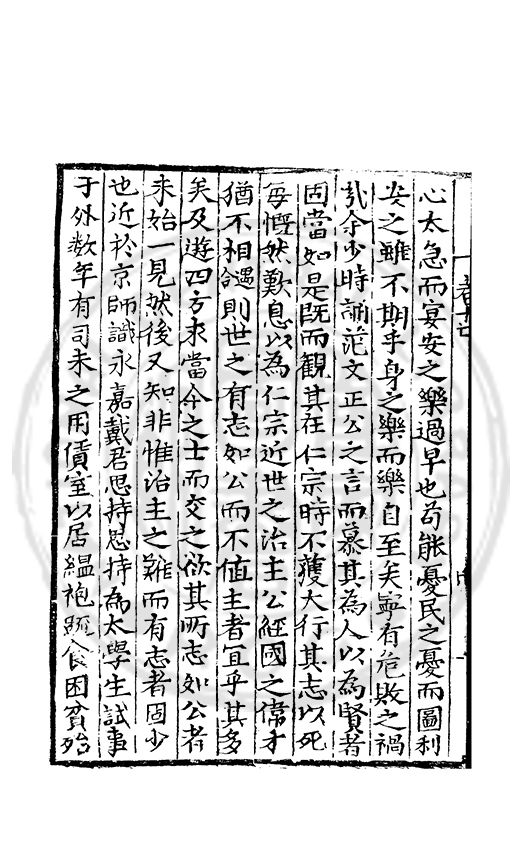 心太急而宴安之樂過早也苟能憂民之憂而圖利
安之雖不期乎身之樂而樂自至矣寧有危敗之禍
哉余少時誦范文正公之言而慕其為人以為賢者
固當如是既而觀其在仁宗時不獲大行其志以死
每慨然歎息以為仁宗近世之治主公經國之偉才
猶不相遇則世之有志如公而不值主者宜乎其多
矣及遊四方求當今之士而交之欲其所志如公者
未始一見然後又知非惟治主之難而有志者固少
也近於京師識永嘉戴君思持思持為太學生試事
于外数年有司未之用僨室以居緼袍疏食困貧殆